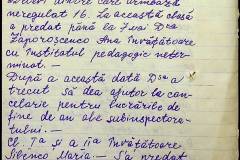 elevi minore care urmează
neregulat 16. La această clasă
a predat până la 7 mai D-ra
Zaporoscenco Ana învățătoare
cu Institutul pedagogic neter-
minat. —
După a această dată D-sa a
trecut să dea ajutor la can-
celarie pentru lucrările de
fine de an ale subinspectora-
tului. —
Cl. I-a și a II-a învățătoare
Sibenco Maria. — S'a predat